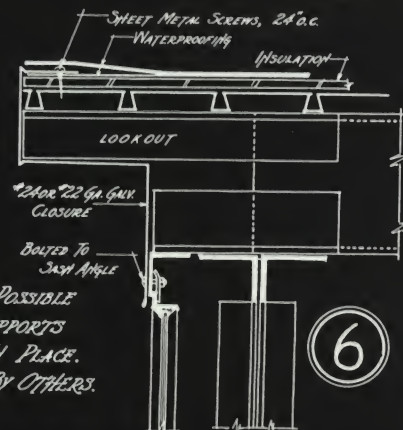 SHEET METAL SCREWS, 24" O.C.
WATERPROOFING
INSULATION
LOOKOUT
#24 OR #22 GA. GALV.
CLOSURE
BOLTED TO
SASH ANGLE
POSSIBLE
PLACE.
BY OTHERS.
6